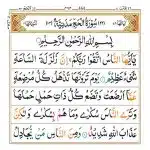 سُوْرَةُ الْحَجِّ مَدَنِيَّةٌ
بِسْمِ اللّٰهِ الرَّحْمٰنِ الرَّحِيْمِ
يٰۤاَيُّهَا النَّاسُ اتَّقُوْا رَبَّكُمْ ۚ اِنَّ زَلْزَلَةَ السَّاعَةِ
شَیْءٌ عَظِيْمٌ ۝ يَوْمَ تَرَوْنَهَا تَذْهَلُ كُلُّ مُرْضِعَةٍ
عَمَّاۤ اَرْضَعَتْ وَتَضَعُ كُلُّ ذَاتِ حَمْلٍ حَمْلَهَا
وَتَرَى النَّاسَ سُكٰرٰى وَمَا هُمْ بِسُكٰرٰى وَلٰكِنَّ
عَذَابَ اللّٰهِ شَدِيْدٌ ۝ وَمِنَ النَّاسِ مَنْ